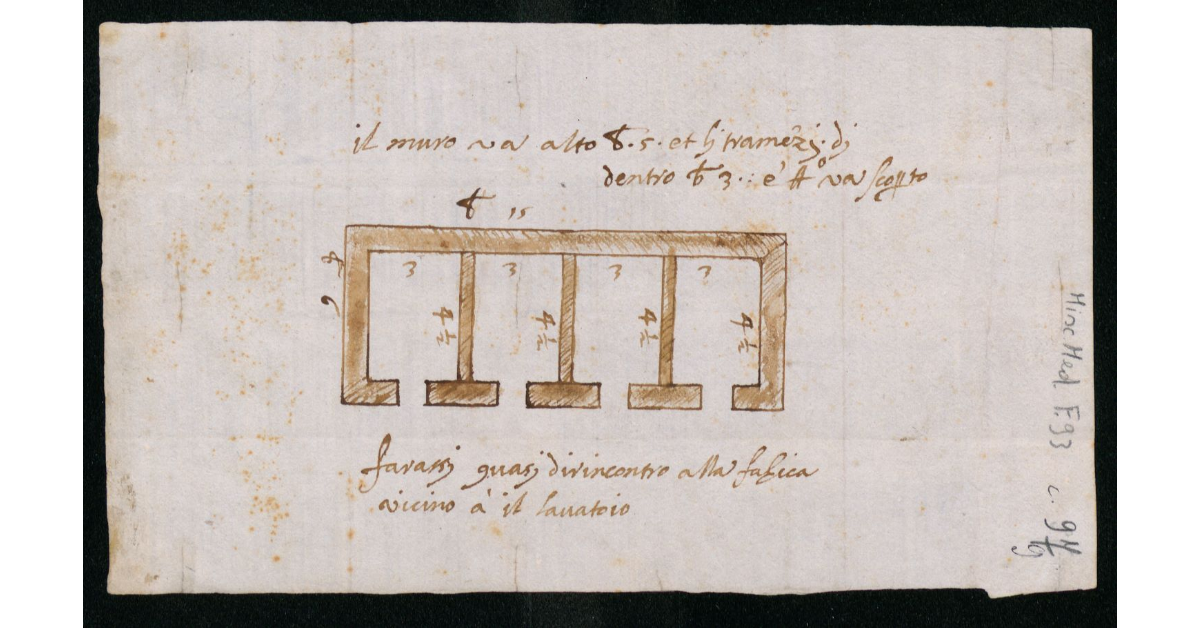 il muro va alto b. 5. et lj tramezzj. dj
dentro b 3. : e' tt.º va scop.to
b 15
3 3 3 3
b
6
4 ½ 4 ½ 4 ½ 4 ½
farassj quasj dirincontro alla fabrica
vicino à il lavatoio
Misc Med F. 93
c. 94
19